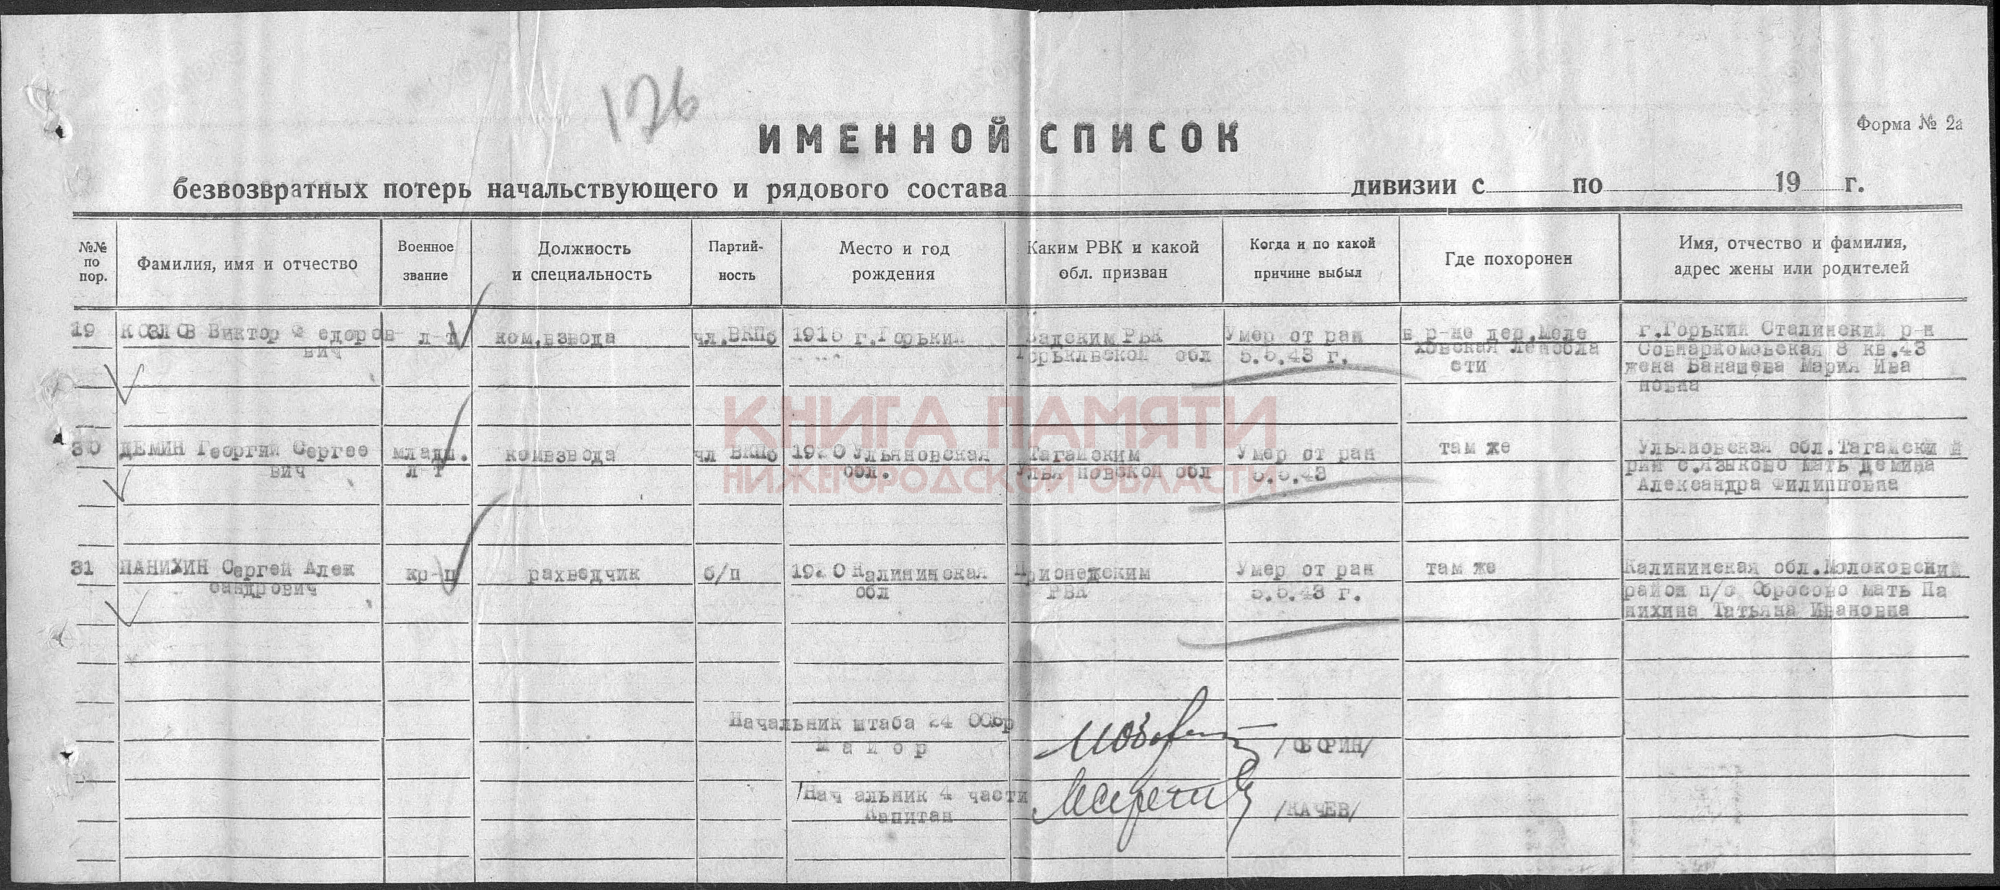 126
ИМЕННОЙ СПИСОК
Форма № 2а
безвозвратных потерь начальствующего и рядового состава дивизии с по 19 г.
№№ по пор.
Фамилия, имя и отчество
Военное звание
Должность и специальность
Партий-ность
Место и год рождения
Каким РВК и какой обл. призван
Когда и по какой причине выбыл
Где похоронен
Имя, отчество и фамилия, адрес жены или родителей
КОЗЛОВ Виктор Федоров
вич
л-т
ком.взвода
чл.ВКПб
г.Горький
РВК
обл
Умер от ран
5.5.43 г.
в р-не дер.
сти
г.Горький Сталинский р-н
Совнаркомовская 3 кв.43
жена Банашева Мария Ива
новна
30 ДЕМИН Георгий Сергее
вич
младш.
л-т
комвзвода
чл ВКПб
1920 Ульяновская
обл.
Умер от ран
5.5.43
там же
Ульяновская обл.
с.Языково мать Демина
Александра Филипповна
31 ПАНИХИН Сергей Алек
сандрович
кр-ц
б/п
1920 Калининская
обл
РВК
Умер от ран
5.5.43 г.
там же
Калининская обл.Молоковский
район п/о мать Па
нихина Татьяна Ивановна
КНИГА ПАМЯТИ
НИЖЕГОРОДСКОЙ ОБЛАСТИ
Начальник штаба 24
майор
/ОБОРИН/
/Начальник 4 части
Капитан
/КАЧЕВ/